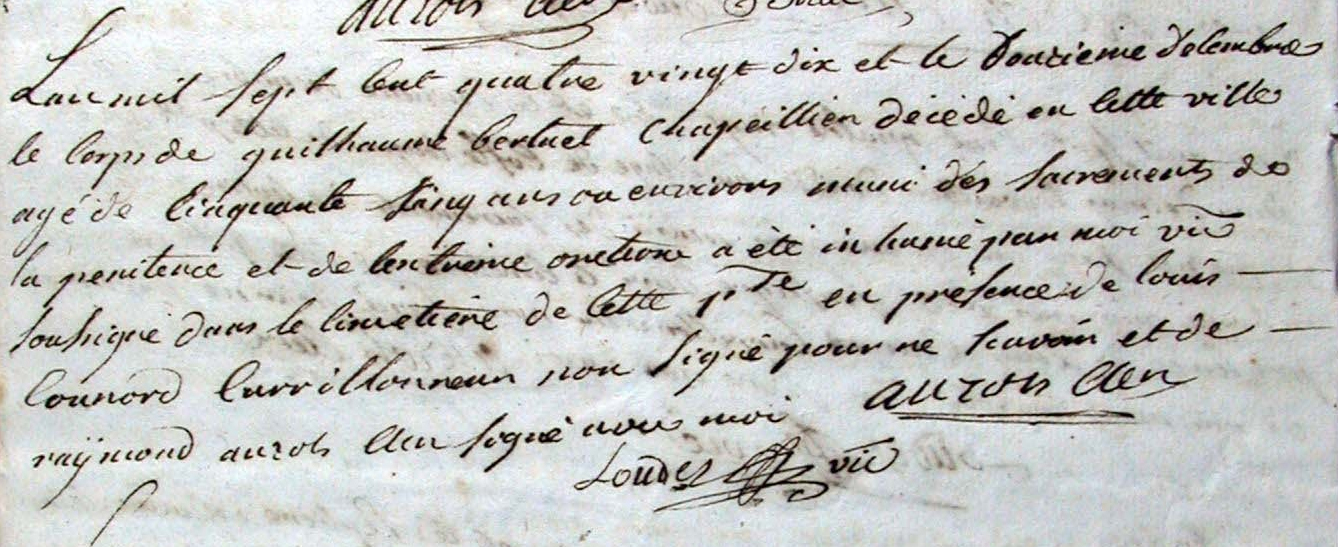 auzols clerc
Lan mil sept cent quatre vingt dix et le douzieme decembre
le corps de guilhaume bertuel chapeillier décédé en cette ville
agé de cinquante sinq ans ou environs muni dés sacrements de
la penitence et de lextreme onction a èté inhumé par moi vic
soussigné dans le cimetière de cette psse en présence de louis
counord carrillonneur non signé pour ne scavoir et de
raÿmond auzols clerc signé avec moi auzols clerc
Loudes vic